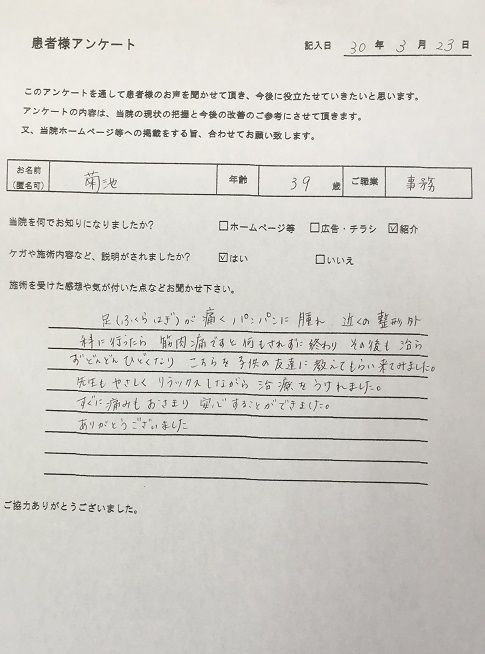 患者様アンケート
記入日 30 年 3 月 23 日
このアンケートを通して患者様のお声を聞かせて頂き、今後に役立たせていきたいと思います。
アンケートの内容は、当院の現状の把握と今後の改善のご参考にさせて頂きます。
又、当院ホームページ等への掲載をする旨、合わせてお願い致します。
お名前 (匿名可) 菊池 年齢 39 歳 ご職業 事務
当院を何でお知りになりましたか? □ホームページ等 □広告・チラシ ☑紹介
ケガや施術内容など、説明がされましたか? ☑はい □いいえ
施術を受けた感想や気が付いた点などお聞かせ下さい。
足(ふくらはぎ)が痛くパンパンに腫れ 近くの整形外
科に行ったら 筋肉痛ですと何もされずに終わり その後も治ら
ずどんどんひどくなり こちらを子供の友達に教えてもらい来てみました。
先生もやさしく リラックスしながら 治療をうけれました。
すぐに痛みもおさまり 安心することができました。
ありがとうございました
ご協力ありがとうございました。